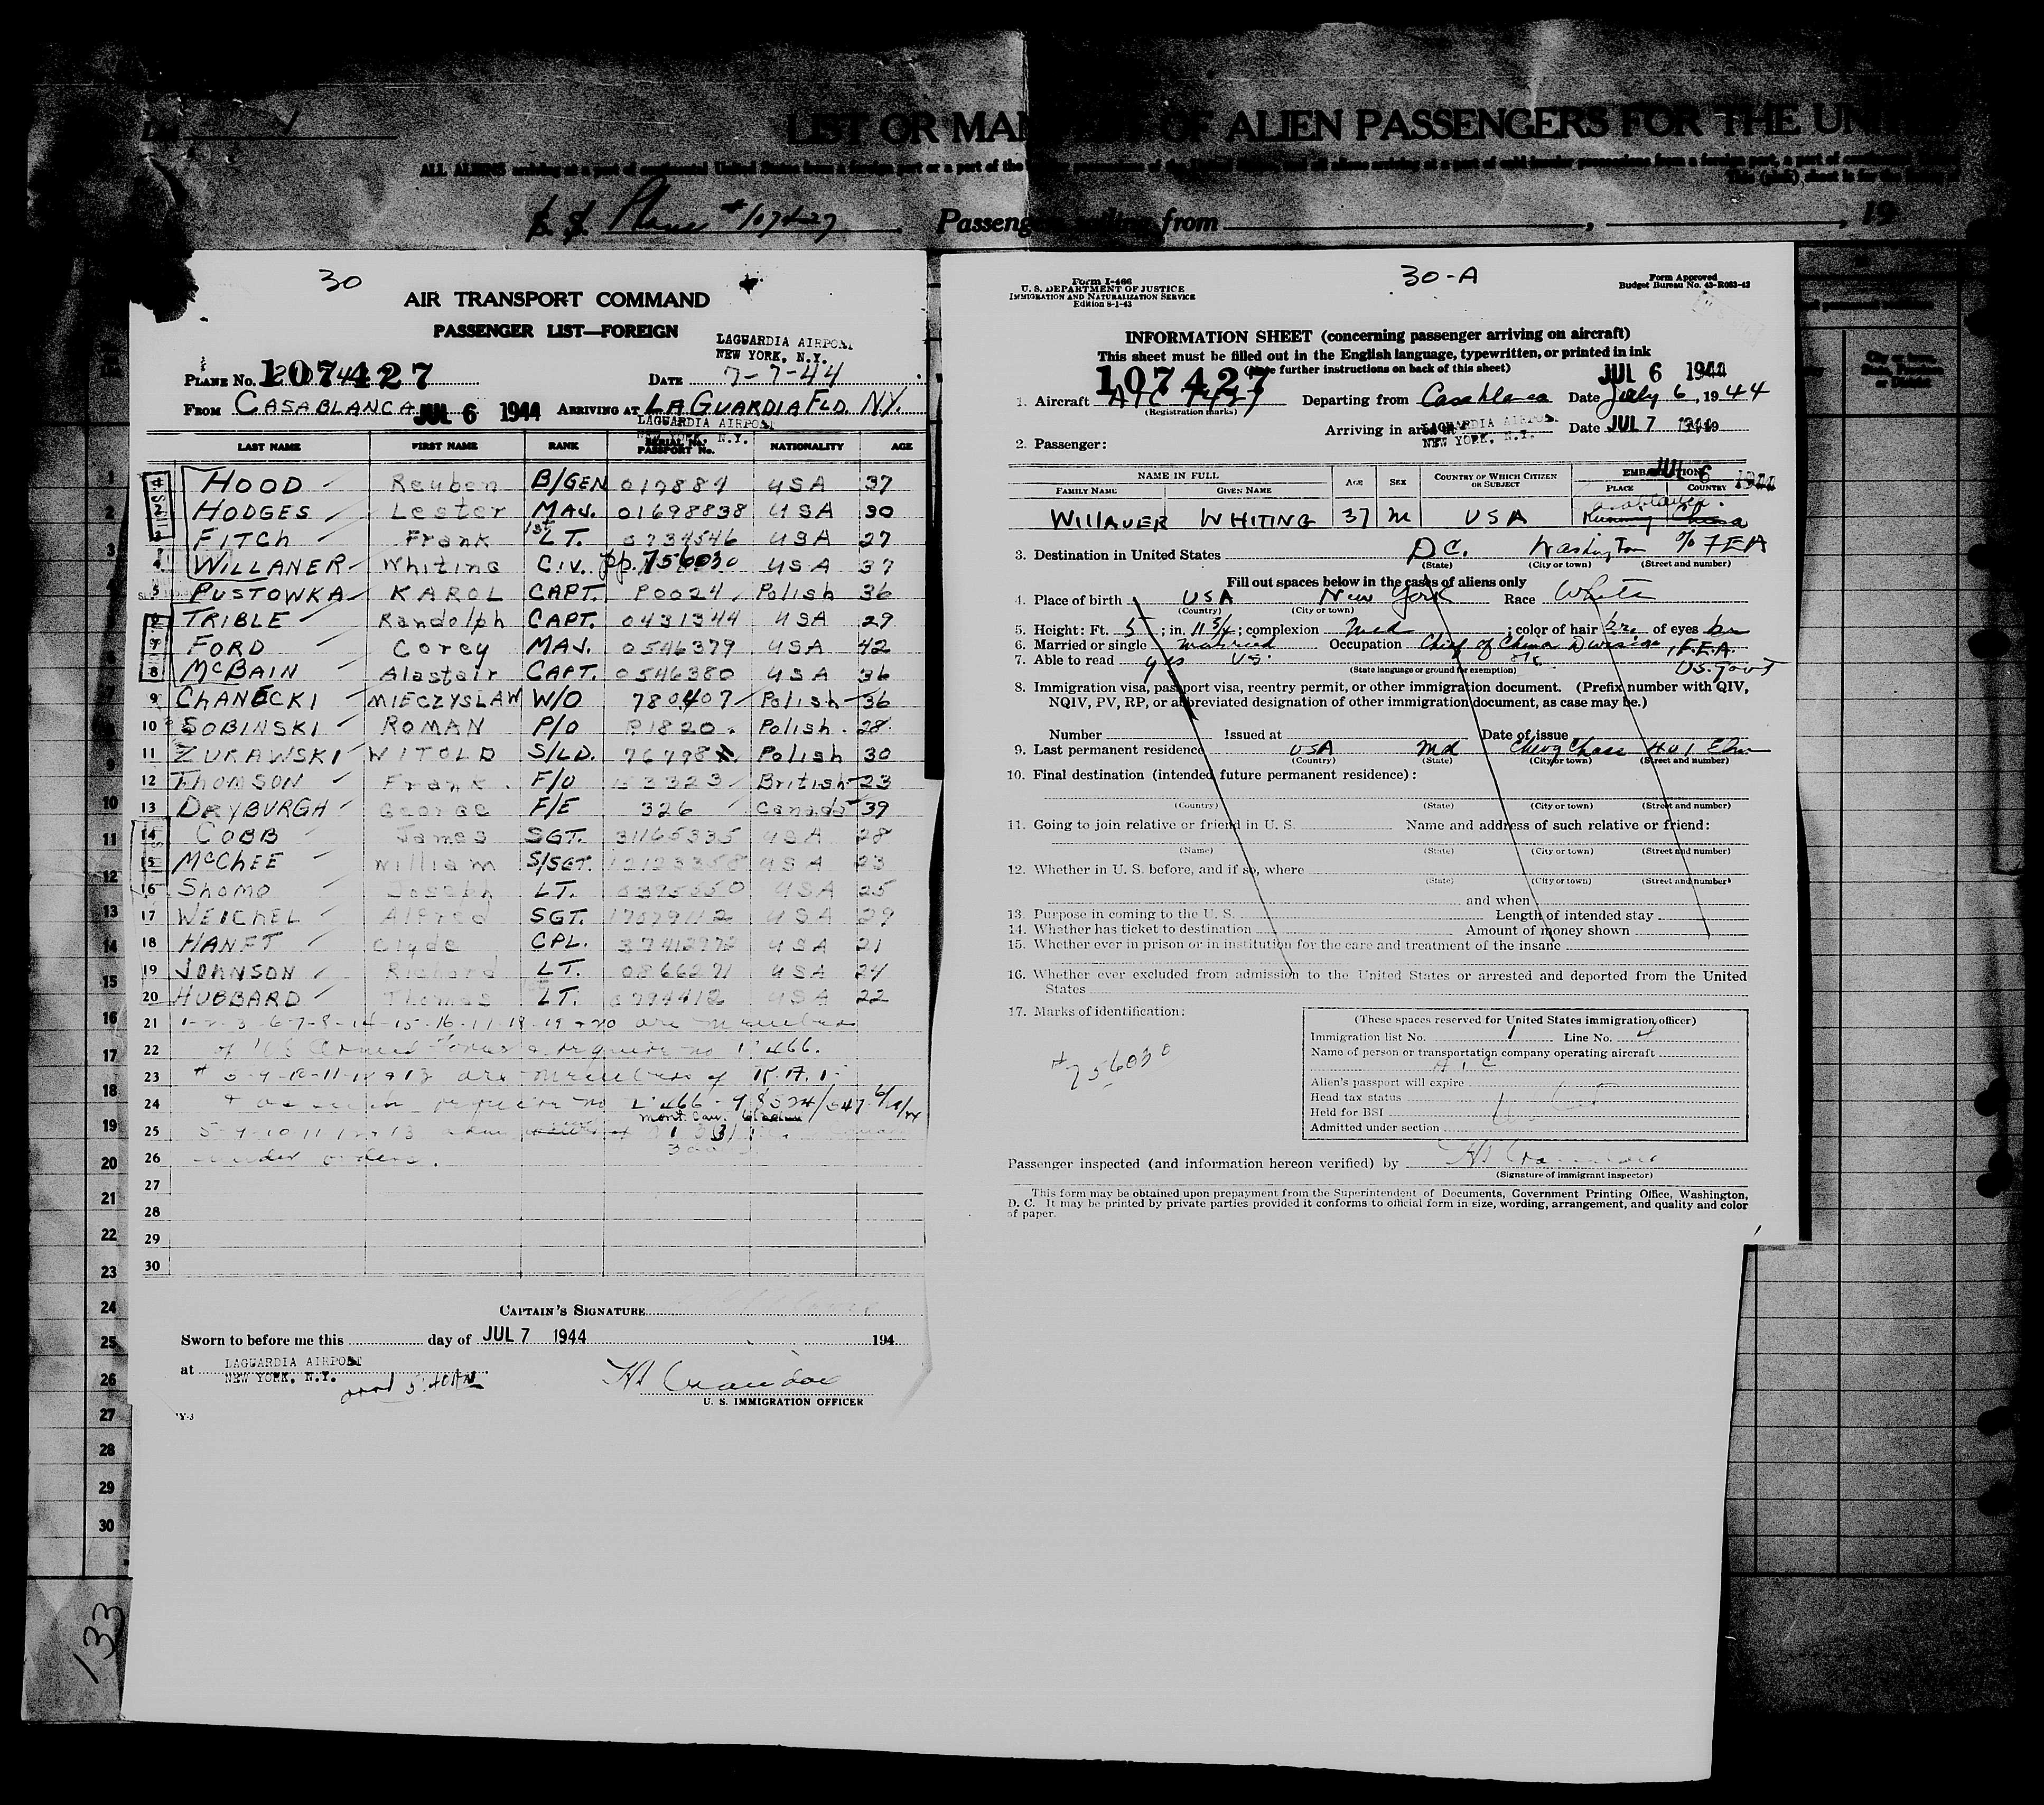 List
LIST OR MANIFEST OF ALIEN PASSENGERS FOR THE UNI
ALL ALIENS arriving at a port of continental United States from a foreign port or a port of the
S. S. Plane #107427 Passengers sailing from , , 19
30
AIR TRANSPORT COMMAND
PASSENGER LIST—FOREIGN
LAGUARDIA AIRPORT
NEW YORK, N.Y.
PLANE No. 107427 DATE 7-7-44
FROM CASABLANCA JUL 6 1944 ARRIVING AT LA GUARDIA FLD. NY.
LAGUARDIA AIRPORT
NEW YORK, N.Y.
LAST NAME FIRST NAME RANK SERIAL No. PASSPORT No. NATIONALITY AGE
1 HOOD Reuben B/GEN 017887 USA 37
2 HODGES Lester MAJ. 01698838 USA 30
3 FITCH Frank 1st LT. 0734546 USA 27
4 WILLANER Whiting CIV. pp. 756030 USA 37
5 PUSTOWKA KAROL CAPT. P0024 Polish 36
6 TRIBLE Randolph CAPT. 0431344 USA 29
7 FORD Corey MAJ. 0546379 USA 42
8 McBAIN Alastair CAPT. 0546380 USA 36
9 CHANECKI MIECZYSLAW W/O 780407 Polish 36
10 SOBINSKI ROMAN P/O P1820 Polish 28
11 ZURAWSKI WITOLD S/LD. 76798 Polish 30
12 THOMSON Frank F/O 153323 British 23
13 DRYBURGH George F/E 326 Canada 39
14 COBB James SGT. 31165335 USA 28
15 McCHEE William S/SGT. 12123358 USA 23
16 Shomo Joseph LT. 0395550 USA 25
17 WEICHEL Alfred SGT. 17079112 USA 29
18 HANFT Clyde CPL. 37412972 USA 21
19 JOHNSON Richard LT. 0866271 USA 24
20 HUBBARD Thomas LT. 0794412 USA 22
21 1-2-3-6-7-8-14-15-16-17-18-19 & 20 are members
22 of US Armed Forces & require no I 466.
23 # 5-9-10-11-12 & 13 are members of R.A.F.
24 & as such require no I 466
25 5 9 10 11 12 & 13
26 under orders.
27
28
29
30
CAPTAIN'S SIGNATURE
Sworn to before me this day of JUL 7 1944 194
at LAGUARDIA AIRPORT
NEW YORK, N.Y.
arrd 5:40 AM
U. S. IMMIGRATION OFFICER
Form I-466
U. S. DEPARTMENT OF JUSTICE
IMMIGRATION AND NATURALIZATION SERVICE
Edition 8-1-43
30-A
Form Approved
Budget Bureau No. 43-R083-42
INFORMATION SHEET (concerning passenger arriving on aircraft)
This sheet must be filled out in the English language, typewritten, or printed in ink
(Note further instructions on back of this sheet)
107427 JUL 6 1944
1. Aircraft ATC 7427 Departing from Casablanca Date July 6, 1944
(Registration marks)
Arriving in area LAGUARDIA AIRPORT NEW YORK, N.Y. Date JUL 7 1944
2. Passenger:
NAME IN FULL AGE SEX COUNTRY OF WHICH CITIZEN OR SUBJECT EMBARKATION JUL 6 1944
FAMILY NAME GIVEN NAME PLACE COUNTRY
WILLAUER WHITING 37 M USA Casablanca Kunming China
3. Destination in United States D.C. Washington % FEA
(State) (City or town) (Street and number)
Fill out spaces below in the cases of aliens only
4. Place of birth USA New York Race White
(Country) (City or town)
5. Height: Ft. 5 ; in. 11 3/4 ; complexion Med ; color of hair br. of eyes br
6. Married or single Married Occupation Chief of China Division, F.E.A. US. Govt
7. Able to read yes
(State language or ground for exemption)
8. Immigration visa, passport visa, reentry permit, or other immigration document. (Prefix number with QIV,
NQIV, PV, RP, or abbreviated designation of other immigration document, as case may be.)
Number Issued at Date of issue
9. Last permanent residence USA Md Chevy Chase 401 Elm
(Country) (State) (City or town) (Street and number)
10. Final destination (intended future permanent residence):
(Country) (State) (City or town) (Street and number)
11. Going to join relative or friend in U. S. Name and address of such relative or friend:
(Name) (State) (City or town) (Street and number)
12. Whether in U. S. before, and if so, where
(State) (City or town) (Street and number)
and when
13. Purpose in coming to the U. S. Length of intended stay
14. Whether has ticket to destination Amount of money shown
15. Whether ever in prison or in institution for the care and treatment of the insane
16. Whether ever excluded from admission to the United States or arrested and deported from the United
States
17. Marks of identification:
#756030
(These spaces reserved for United States immigration officer)
Immigration list No. 1 Line No. 4
Name of person or transportation company operating aircraft
ATC
Alien's passport will expire
Head tax status
Held for BSI
Admitted under section
Passenger inspected (and information hereon verified) by
(Signature of immigrant inspector)
This form may be obtained upon prepayment from the Superintendent of Documents, Government Printing Office, Washington,
D. C. It may be printed by private parties provided it conforms to official form in size, wording, arrangement, and quality and color
of paper.
133